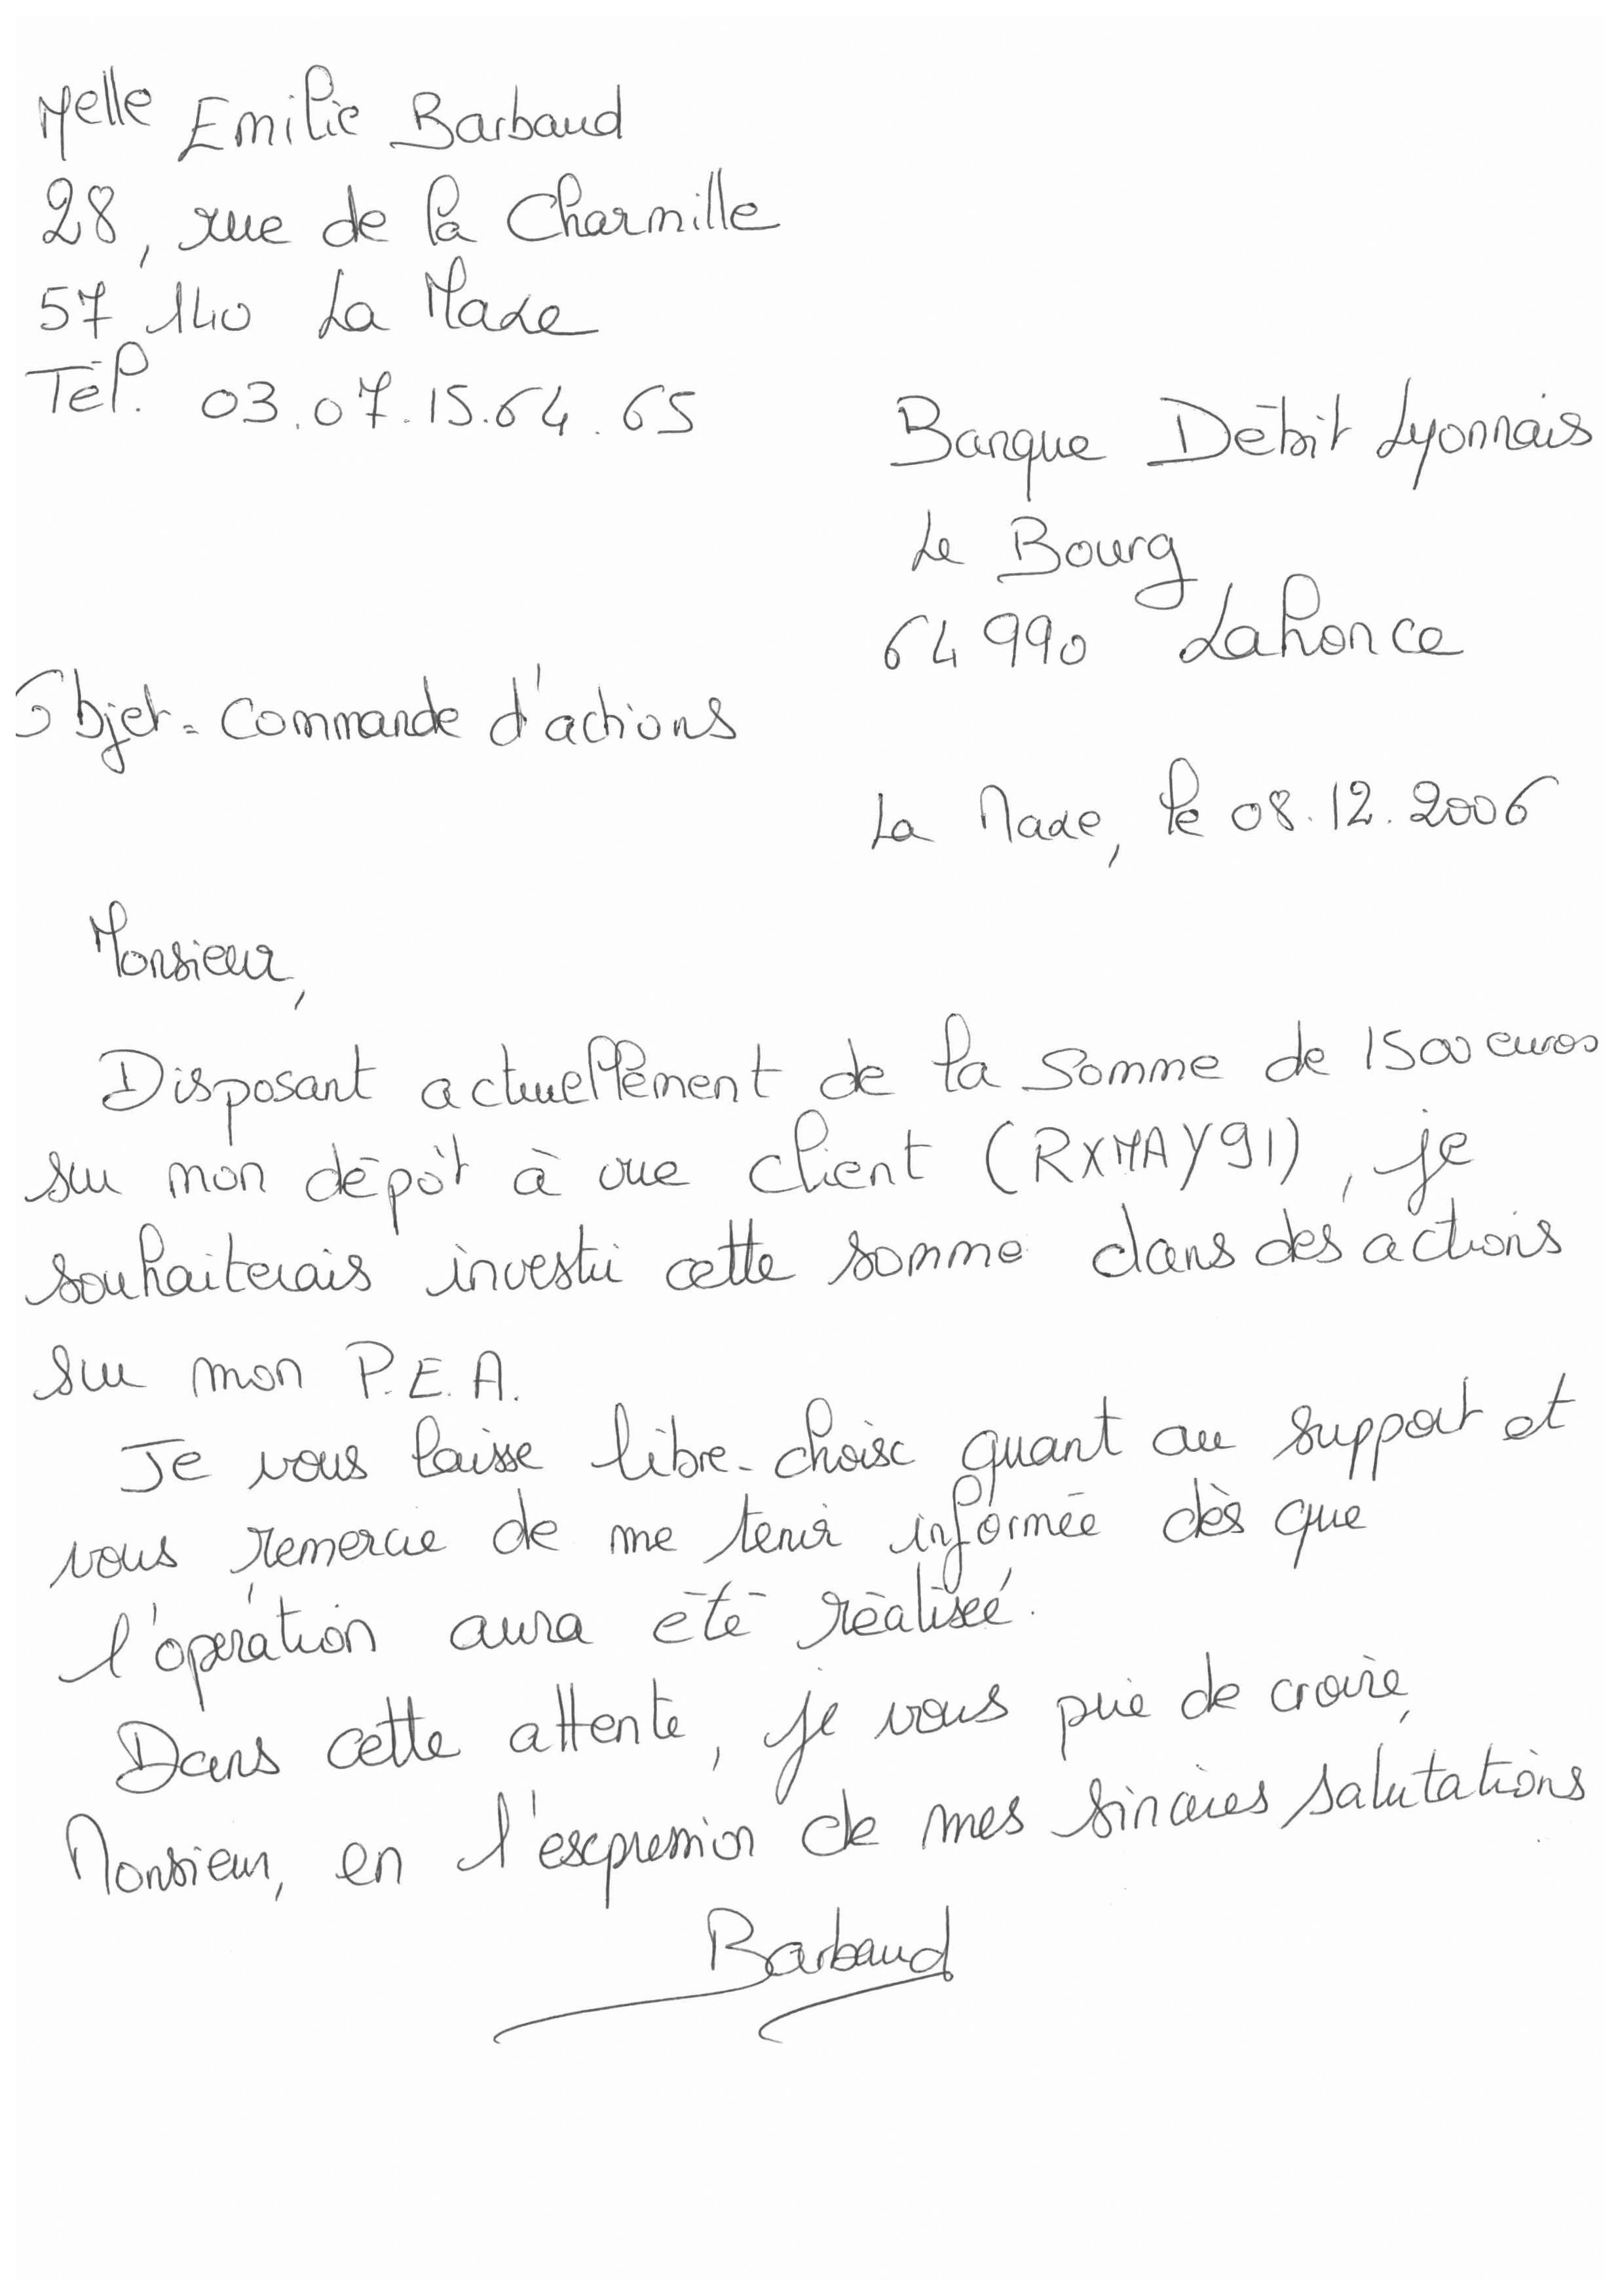 Melle Emilie Barbaud
28, rue de la Charmille
57 140 La Maxe
Tél. 03.07.15.64.65
Banque Débit Lyonnais
Le Bourg
64 990 Lahonce
Objet = Commande d'actions
La Maxe, le 08.12.2006
Monsieur,
Disposant actuellement de la somme de 1500 euros
sur mon dépôt à vue client (RXMAY91), je
souhaiterais investir cette somme dans des actions
sur mon P.E.A.
Je vous laisse libre-choix quant au support et
vous remercie de me tenir informée dès que
l'opération aura été réalisée.
Dans cette attente, je vous prie de croire,
Monsieur, en l'expression de mes sincères salutations
Barbaud